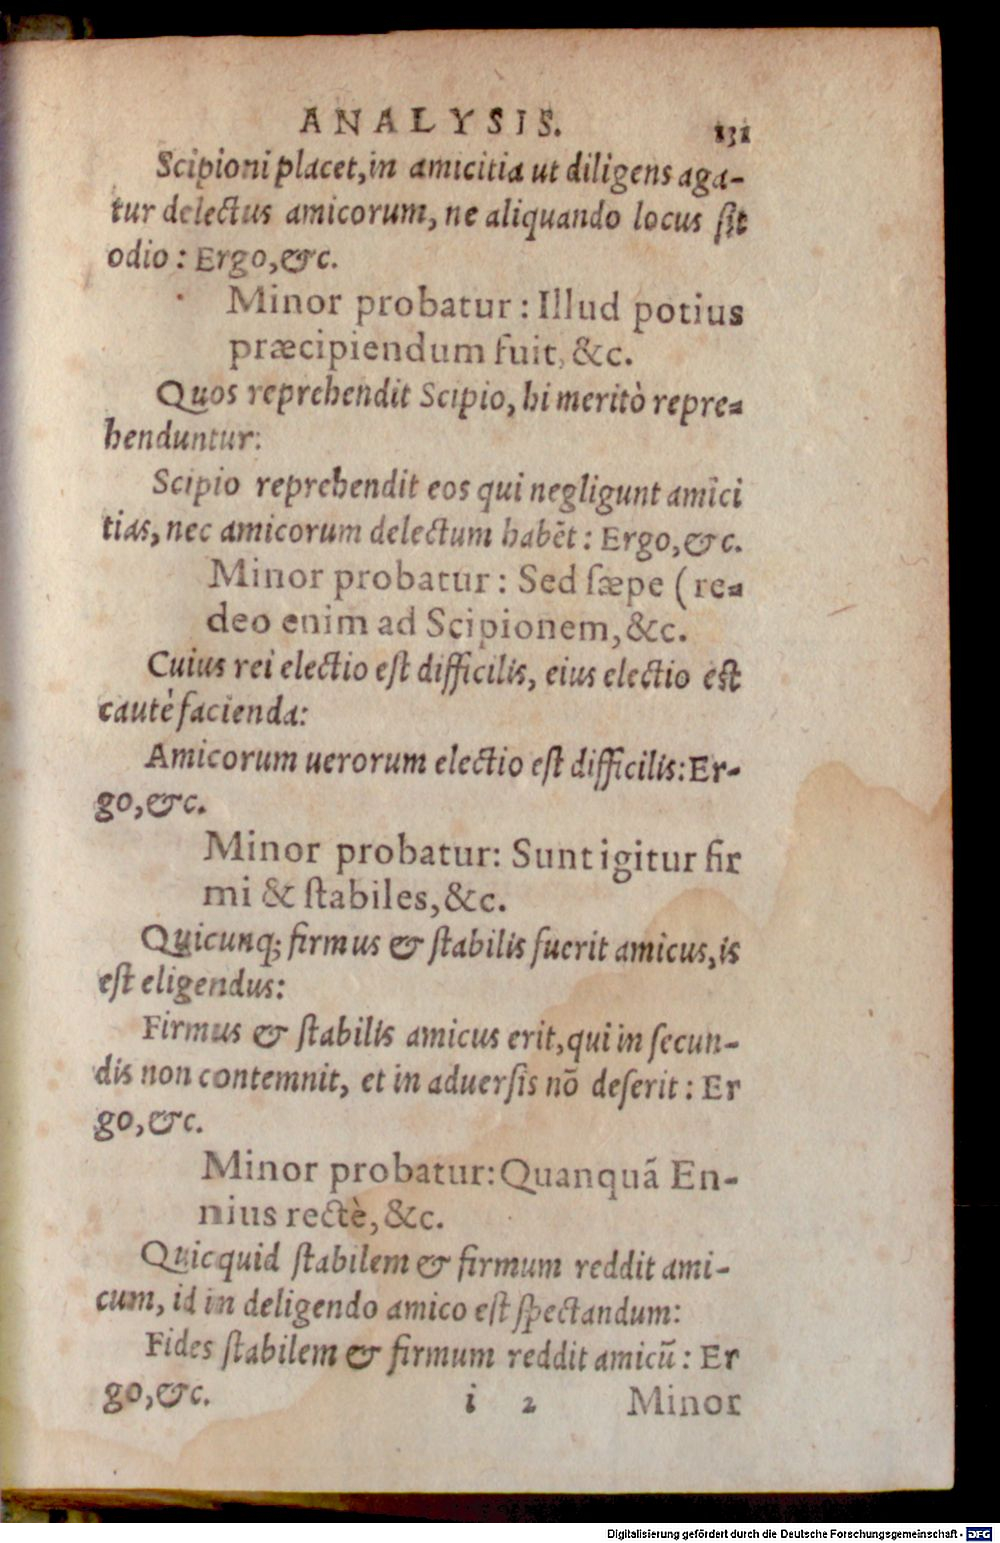 ANALYSIS. 131
Scipioni placet, in amicitia ut diligens aga-
tur delectus amicorum, ne aliquando locus ſit
odio: Ergo, &c.
Minor probatur: Illud potius
præcipiendum fuit, &c.
Quos reprehendit Scipio, hi meritò repre-
henduntur:
Scipio reprehendit eos qui negligunt amici
tias, nec amicorum delectum habẽt: Ergo, &c.
Minor probatur: Sed ſæpe (re-
deo enim ad Scipionem, &c.
Cuius rei electio eſt difficilis, eius electio eſt
cautè facienda:
Amicorum uerorum electio eſt difficilis: Er-
go, &c.
Minor probatur: Sunt igitur fir
mi & ſtabiles, &c.
Quicunq; firmus & ſtabilis fuerit amicus, is
eſt eligendus:
Firmus & ſtabilis amicus erit, qui in ſecun-
dis non contemnit, et in aduerſis nõ deſerit: Er
go, &c.
Minor probatur: Quanquã En-
nius rectè, &c.
Quicquid ſtabilem & firmum reddit ami-
cum, id in deligendo amico eſt ſpectandum:
Fides ſtabilem & firmum reddit amicũ: Er
go, &c. i 2 Minor
Digitalisierung gefördert durch die Deutsche Forschungsgemeinschaft - DFG